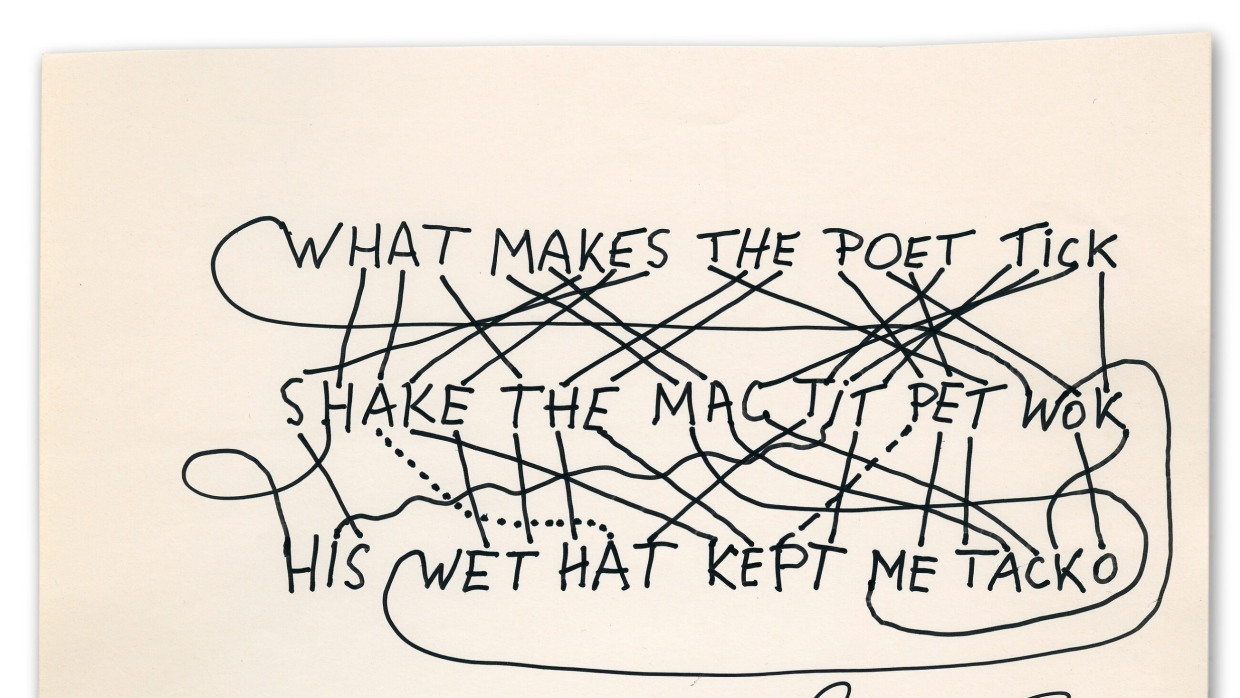 WHAT MAKES THE POET TiCK
SHAKE THE MAC TiT PET WOK
HIS WET HAT KEPT ME TACKO